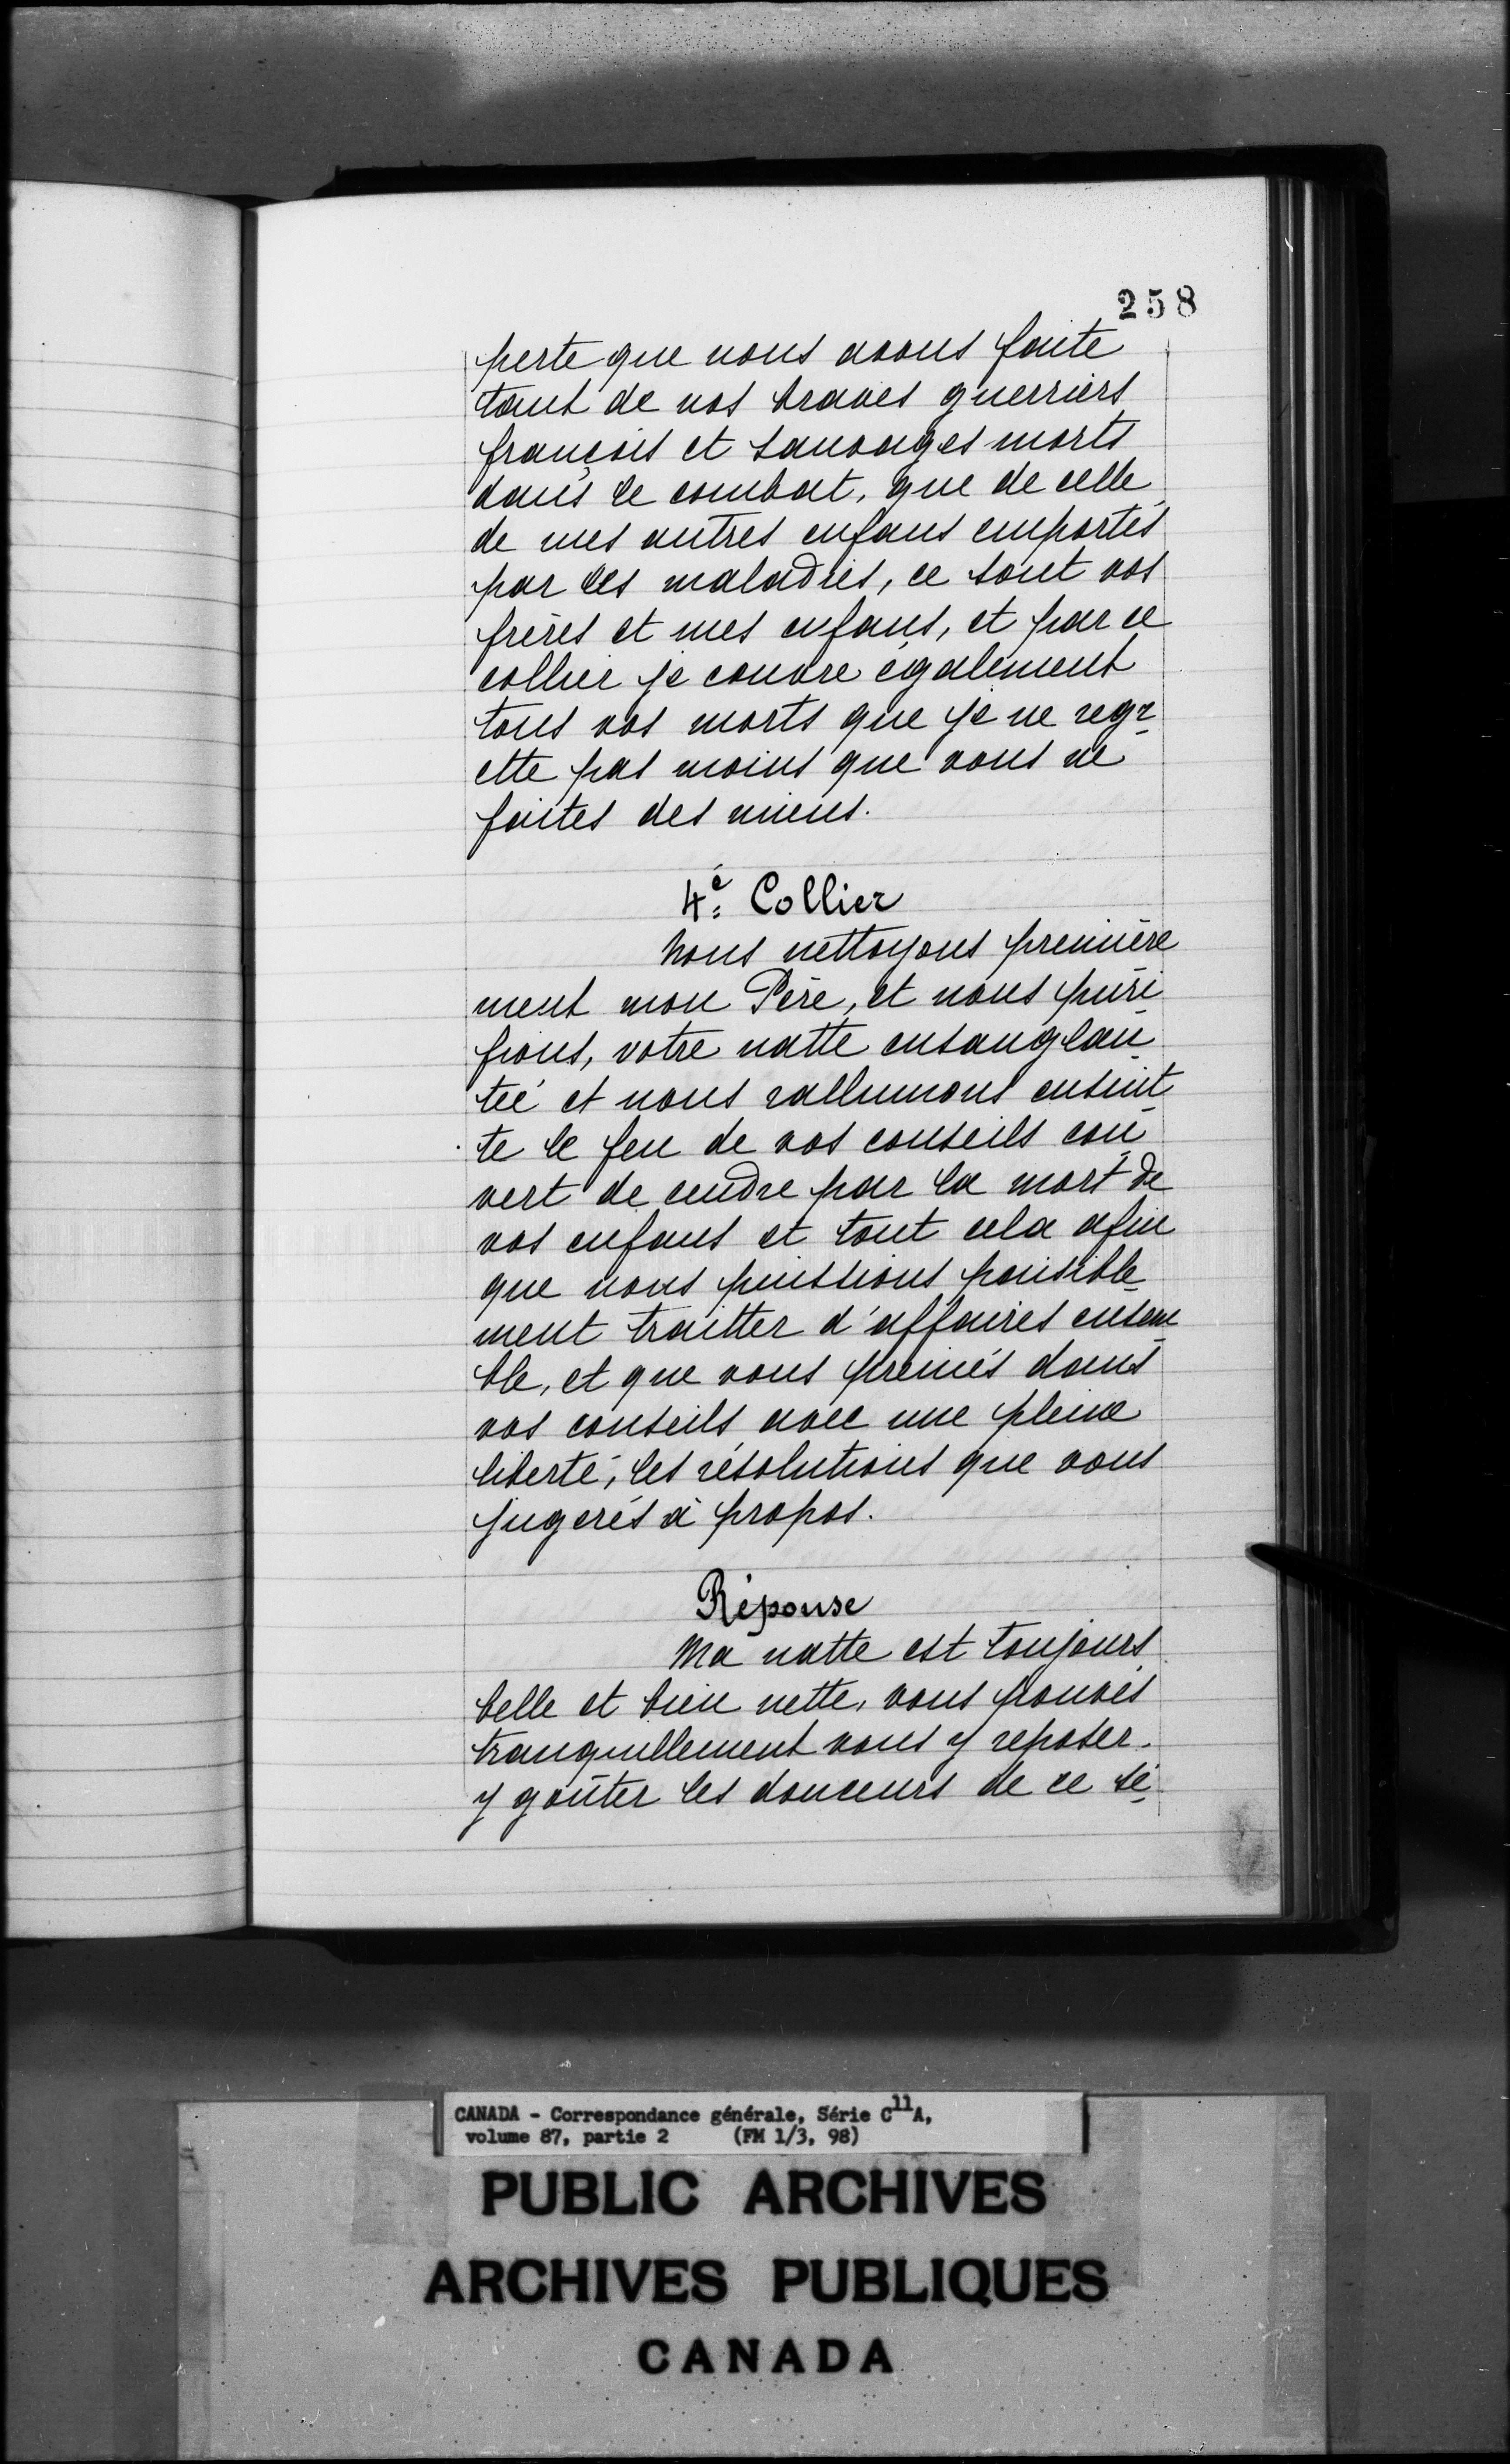 258
perte que nous avons faite
tant de nos braves guerriers
françois et sauvages morts
dans le combat, que de celle
de mes autres enfans emportés
par les maladies, ce sont vos
frères et mes enfans, et par ce
collier je couvre également
tous vos morts que je ne regr-
ette pas moins que vous ne
faites des miens.
4e Collier
Nous nettoyons première
ment mon Père, et nous puri-
fions, votre natte ensanglan-
tée et nous rallumons ensuit-
te le feu de vos conseils cou-
vert de cendre par la mort de
vos enfans et tout cela afin
que nous puissions paisible-
ment traitter d'affaires ensem-
ble, et que vous preniés dans
vos conseils avec une pleine
liberté, les résolutions que vous
jugerés à propos.
Réponse
Ma natte est toujours
belle et bien nette, vous pouvés
tranquillement vous y reposer.
y goûter les douceurs de ce sé-
CANADA - Correspondance générale, Série C11A,
volume 87, partie 2 (FM 1/3, 98)
PUBLIC ARCHIVES
ARCHIVES PUBLIQUES
CANADA